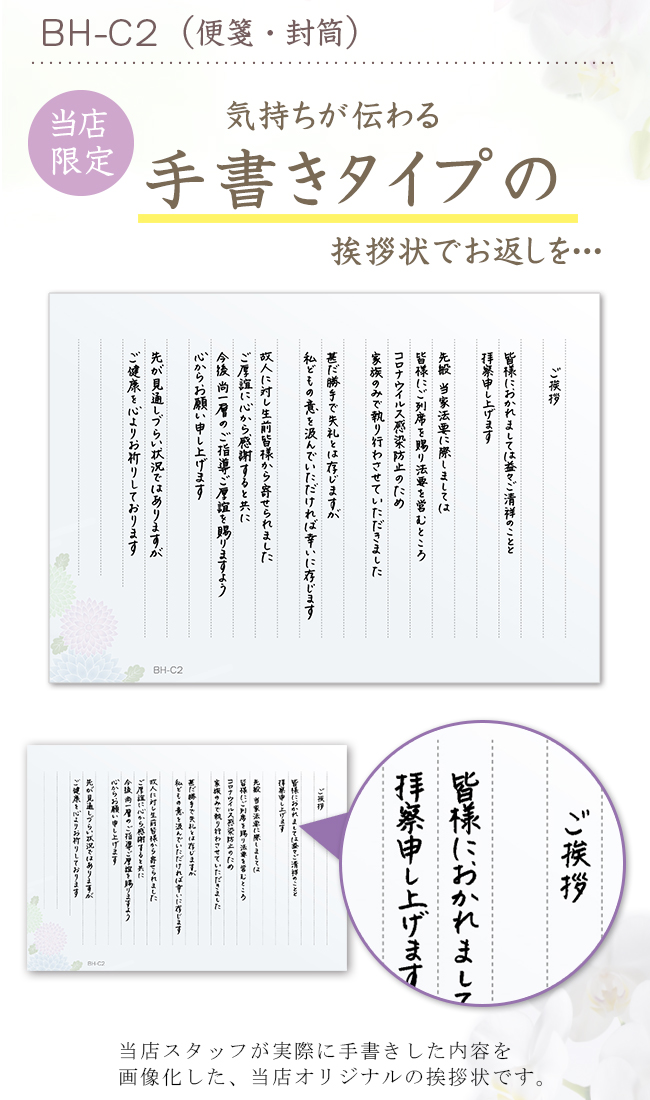 BH-C2（便箋・封筒）
当店
限定
気持ちが伝わる
手書きタイプの
挨拶状でお返しを…
ご挨拶
皆様におかれましては益々ご清祥のことと
拝察申し上げます
先般 当家法要に際しましては
皆様にご列席を賜り法要を営むところ
コロナウイルス感染防止のため
家族のみで執り行わさせていただきました
甚だ勝手で失礼とは存じますが
私どもの意を汲んでいただければ幸いに存じます
故人に対し生前皆様から寄せられました
ご厚誼に心から感謝すると共に
今後 尚一層のご指導ご厚誼を賜りますよう
心からお願い申し上げます
先が見通しづらい状況ではありますが
ご健康を心よりお祈りしております
BH-C2
ご挨拶
皆様におかれましては益々ご清祥のことと
拝察申し上げます
先般 当家法要に際しましては
皆様にご列席を賜り法要を営むところ
コロナウイルス感染防止のため
家族のみで執り行わさせていただきました
甚だ勝手で失礼とは存じますが
私どもの意を汲んでいただければ幸いに存じます
故人に対し生前皆様から寄せられました
ご厚誼に心から感謝すると共に
今後 尚一層のご指導ご厚誼を賜りますよう
心からお願い申し上げます
先が見通しづらい状況ではありますが
ご健康を心よりお祈りしております
BH-C2
ご挨拶
皆様におかれまして
拝察申し上げます
当店スタッフが実際に手書きした内容を
画像化した、当店オリジナルの挨拶状です。